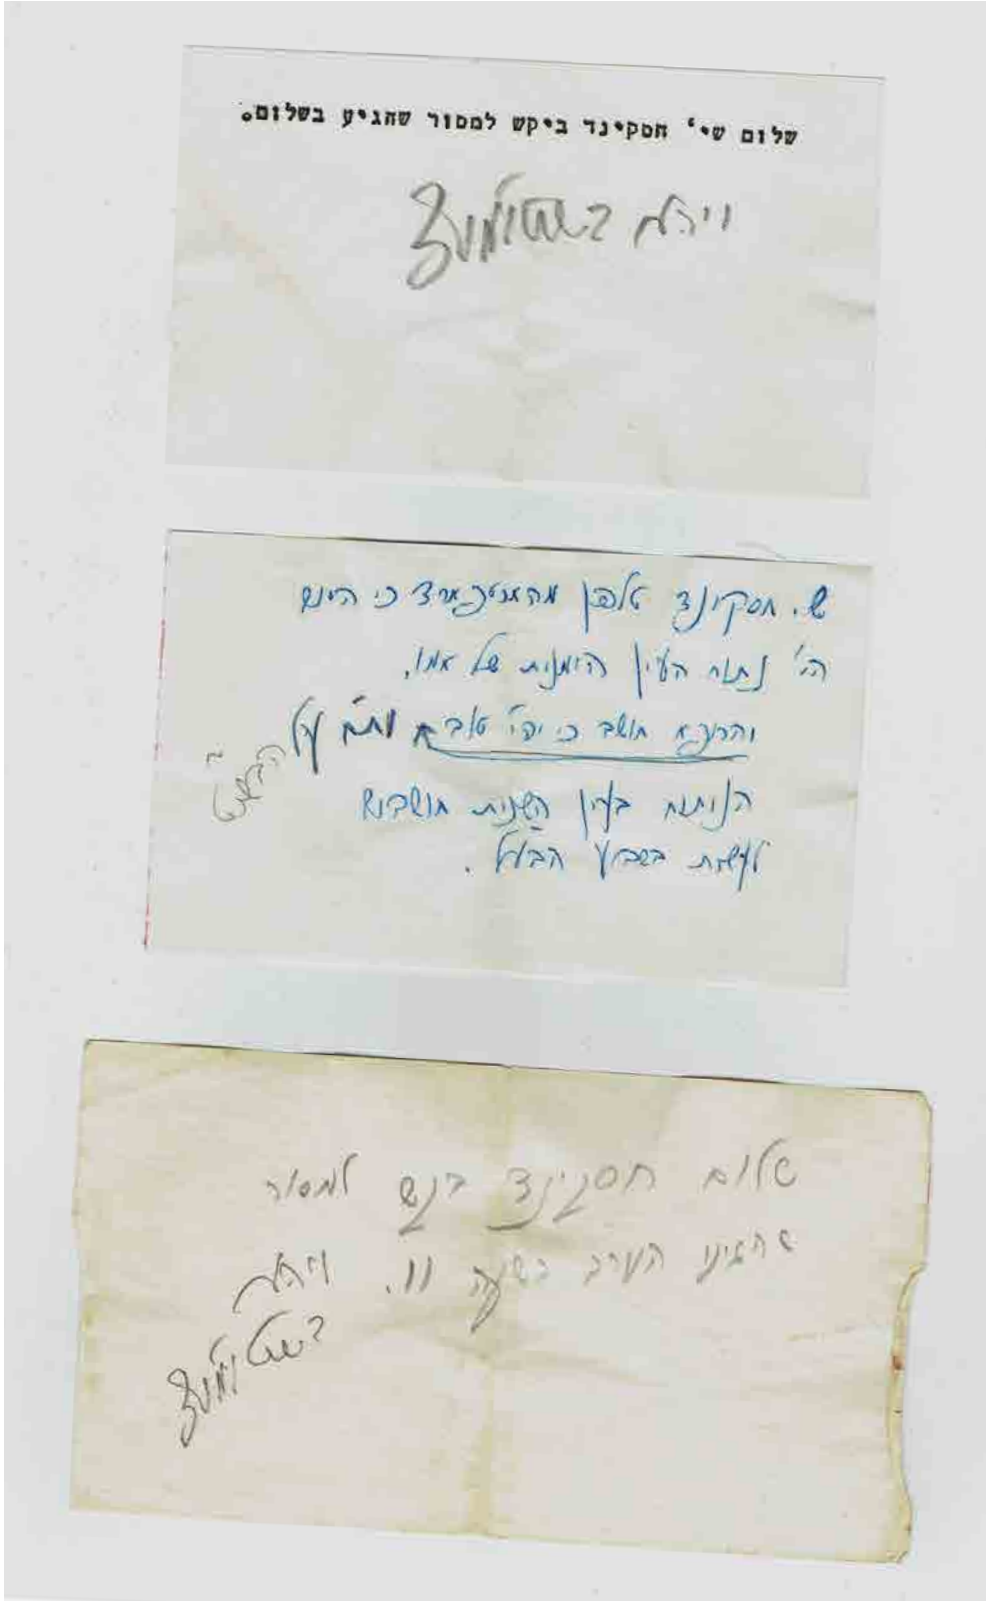 שלום שי' חסקינד ביקש למסור שהגיע בשלום.
ויהא בשטומו"צ
ש. חסקינד טלפן מהאוטפארד כי היום
הי' נתוח העין הימנית של אמו,
והרופא חושב כי יהי' טוב
הניתוח בעין השנית חושבים
לעשות בשבוע הבע"ל.
שלום חסקינד בקש למסור
שהגיעו הערב בשעה 11. ויהא
בשטומו"צ